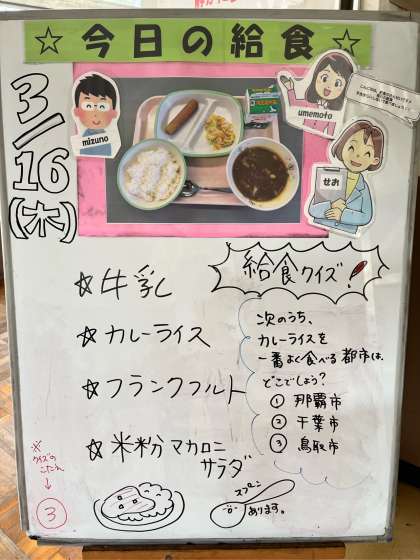 ☆今日の給食☆
3/16
(木)
mizuno
umemoto
せお
☆牛乳
☆カレーライス
☆フランクフルト
☆米粉マカロニ
サラダ
給食クイズ
次のうち、
カレーライスを
一番よく食べる都市は、
どこでしょう?
① 那覇市
② 千葉市
③ 鳥取市
※
クイズの
こたえ
↓
③
スプーン
あります。